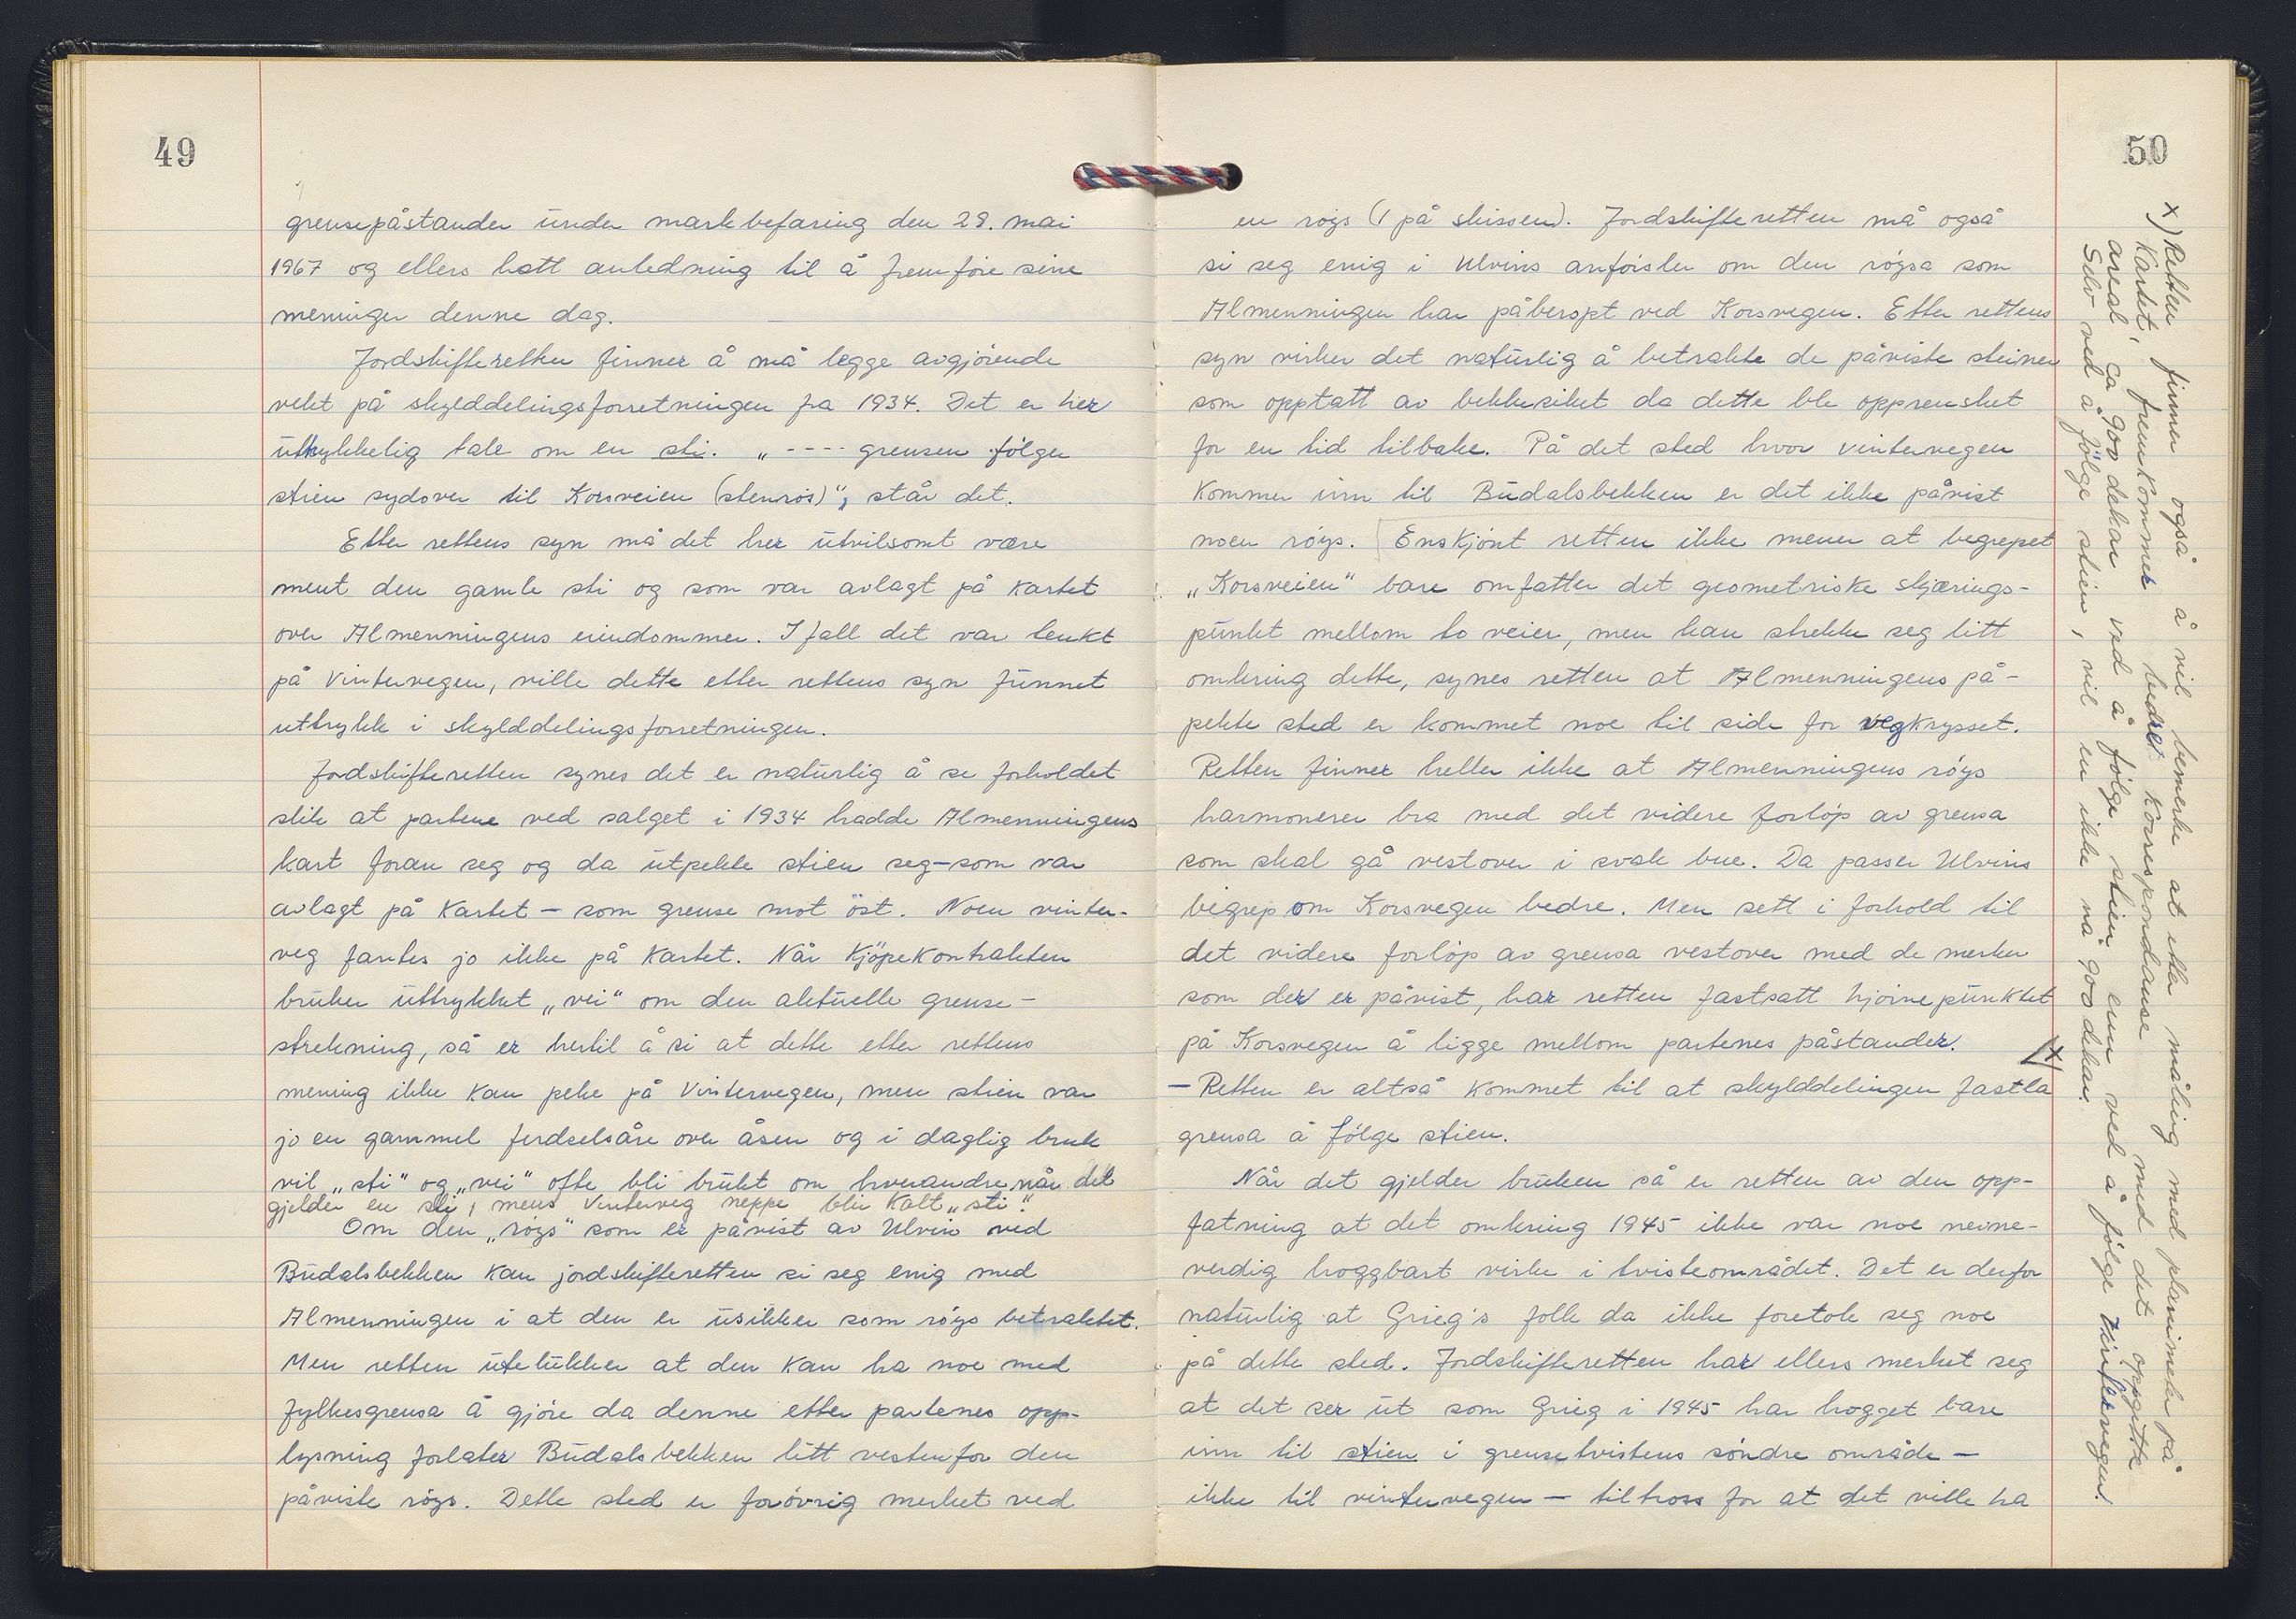 49
grensepåstander under markbefaring den 29. mai
1967 og ellers hatt anledning til å fremföre sine
meninger denne dag.
Jordskifteretten finner å må legge avgjörende
vekt på skylddelingsforretningen fra 1934. Det er her
uttrykkelig tale om en sti. „ ---- grensen fölger
stien sydover til Korsveien (stenrös)", står det.
Etter rettens syn må det her utvilsomt være
ment den gamle sti og som var avlagt på kartet
over Almenningens eiendommer. I fall det var tenkt
på Vintervegen, ville dette etter rettens syn funnet
uttrykk i skylddelingsforretningen.
Jordskifteretten synes det er naturlig å se forholdet
slik at partene ved salget i 1934 hadde Almenningens
kart foran seg og da utpekte stien seg - som var
avlagt på kartet - som grense mot öst. Noen vinter-
veg fantes jo ikke på kartet. Når Kjöpekontrakten
bruker uttrykket „vei" om den aktuelle grense-
strekning, så er hertil å si at dette etter rettens
mening ikke kan peke på Vintervegen, men stien var
jo en gammel ferdselsåre over åsen og i daglig bruk
vil „sti" og „vei" ofte bli brukt om hverandre når det
gjelder en sti, mens Vinterveg neppe blir kalt „sti".
Om den „röys" som er påvist av Ulvin ved
Budalsbekken kan jordskifteretten si seg enig med
Almenningen i at den er usikker som röys betraktet.
Men retten utelukker at den kan ha noe med
fylkesgrensa å gjöre da denne etter partenes opp-
lysning forlater Budalsbekken litt vestenfor den
påviste röys. Dette sted er forövrig merket ved
50
en röys (1 på skissen). Jordskifteretten må også
si seg enig i Ulvins anförsler om den röysa som
Almenningen har påberopt ved Korsvegen. Etter rettens
syn virker det naturlig å betrakte de påviste steiner
som opptatt av bekkesiket da dette ble opprensket
for en tid tilbake. På det sted hvor vintervegen
kommer inn til Budalsbekken er det ikke påvist
noen röys. Enskjönt retten ikke mener at begrepet
„Korsveien" bare omfatter det geometriske skjærings-
punkt mellom to veier, men kan strekke seg litt
omkring dette, synes retten at Almenningens på-
pekte sted er kommet noe til side for vegkrysset.
Retten finner heller ikke at Almenningens röys
harmonerer bra med det videre forlöp av grensa
som skal gå vestover i svak bue. Da passer Ulvins
begrep om Korsvegen bedre. Men sett i forhold til
det videre forlöp av grensa vestover med de merker
som der er påvist, har retten fastsatt hjörnepunktet
på Korsvegen å ligge mellom partenes påstander. x
- Retten er altså kommet til at skylddelingen fastla
grensa å fölge stien.
Når det gjelder bruken så er retten av den opp-
fatning at det omkring 1945 ikke var noe nevne-
verdig hoggbart virke i tvisteområdet. Det er derfor
naturlig at Grieg's folk da ikke foretok seg noe
på dette sted. Jordskifteretten har ellers merket seg
at det ser ut som Grieg i 1945 har hogget bare
inn til stien i grensetvistens söndre område -
ikke til vintervegen - tiltross for at det ville ha
x) Retten finner også å vil bemerke at etter måling med planimeter på
Kartet, fremkommer bedret korrespondanse med det oppgitte
areal, ca 900 dekar ved å fölge stien enn ved å fölge Vintervegen.
Selv ved å fölge stien, vil en ikke nå 900 dekar.